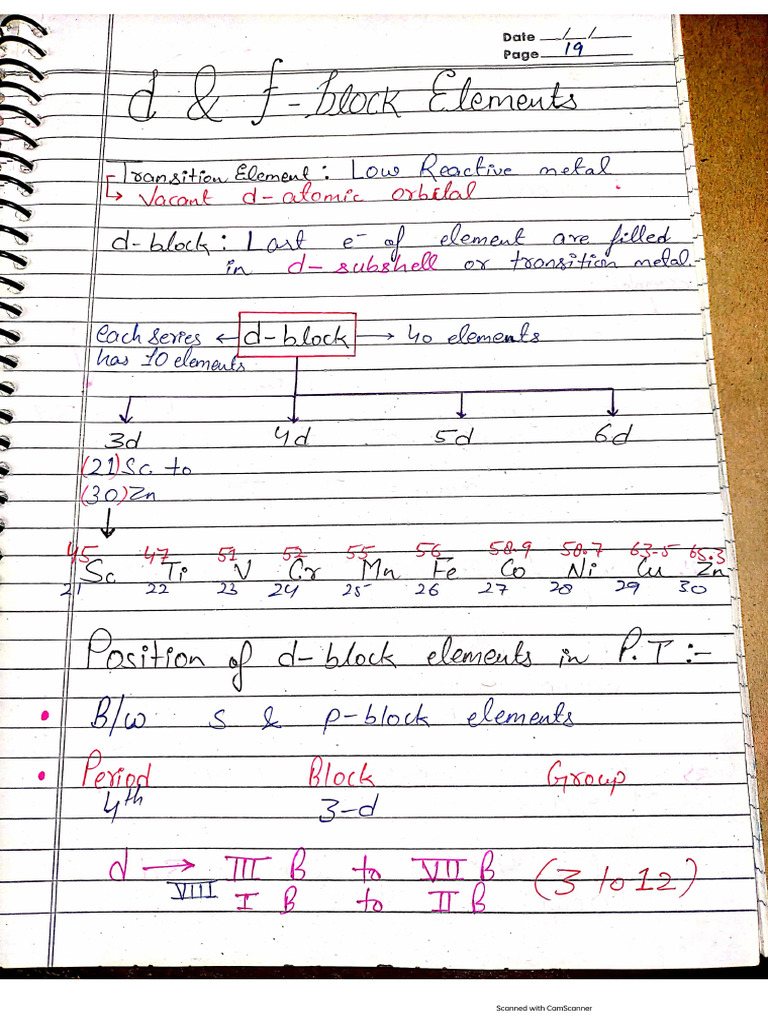 Date __/__/__
Page 19
d & f-block Elements
Transition Element : Low Reactive metal
↳ Vacant d-atomic orbital
d-block : Last e⁻ of element are filled
in d-subshell or transition metal.
each series ← d-block → 40 elements
has 10 elements
3d 4d 5d 6d
(21) Sc to
(30) Zn
45 47 51 52 55 56 58.9 58.7 63.5 65.3
Sc Ti V Cr Mn Fe Co Ni Cu Zn
21 22 23 24 25 26 27 28 29 30
Position of d-block elements in P.T :-
• B/w s & p-block elements
• Period Block Group
4th 3-d
d → III B to VII B (3 to 12)
VIII I B to II B
Scanned with CamScanner